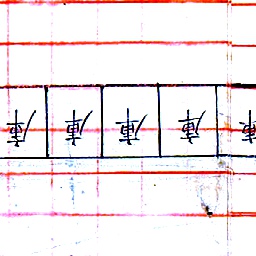 庫 庫 庫 庫